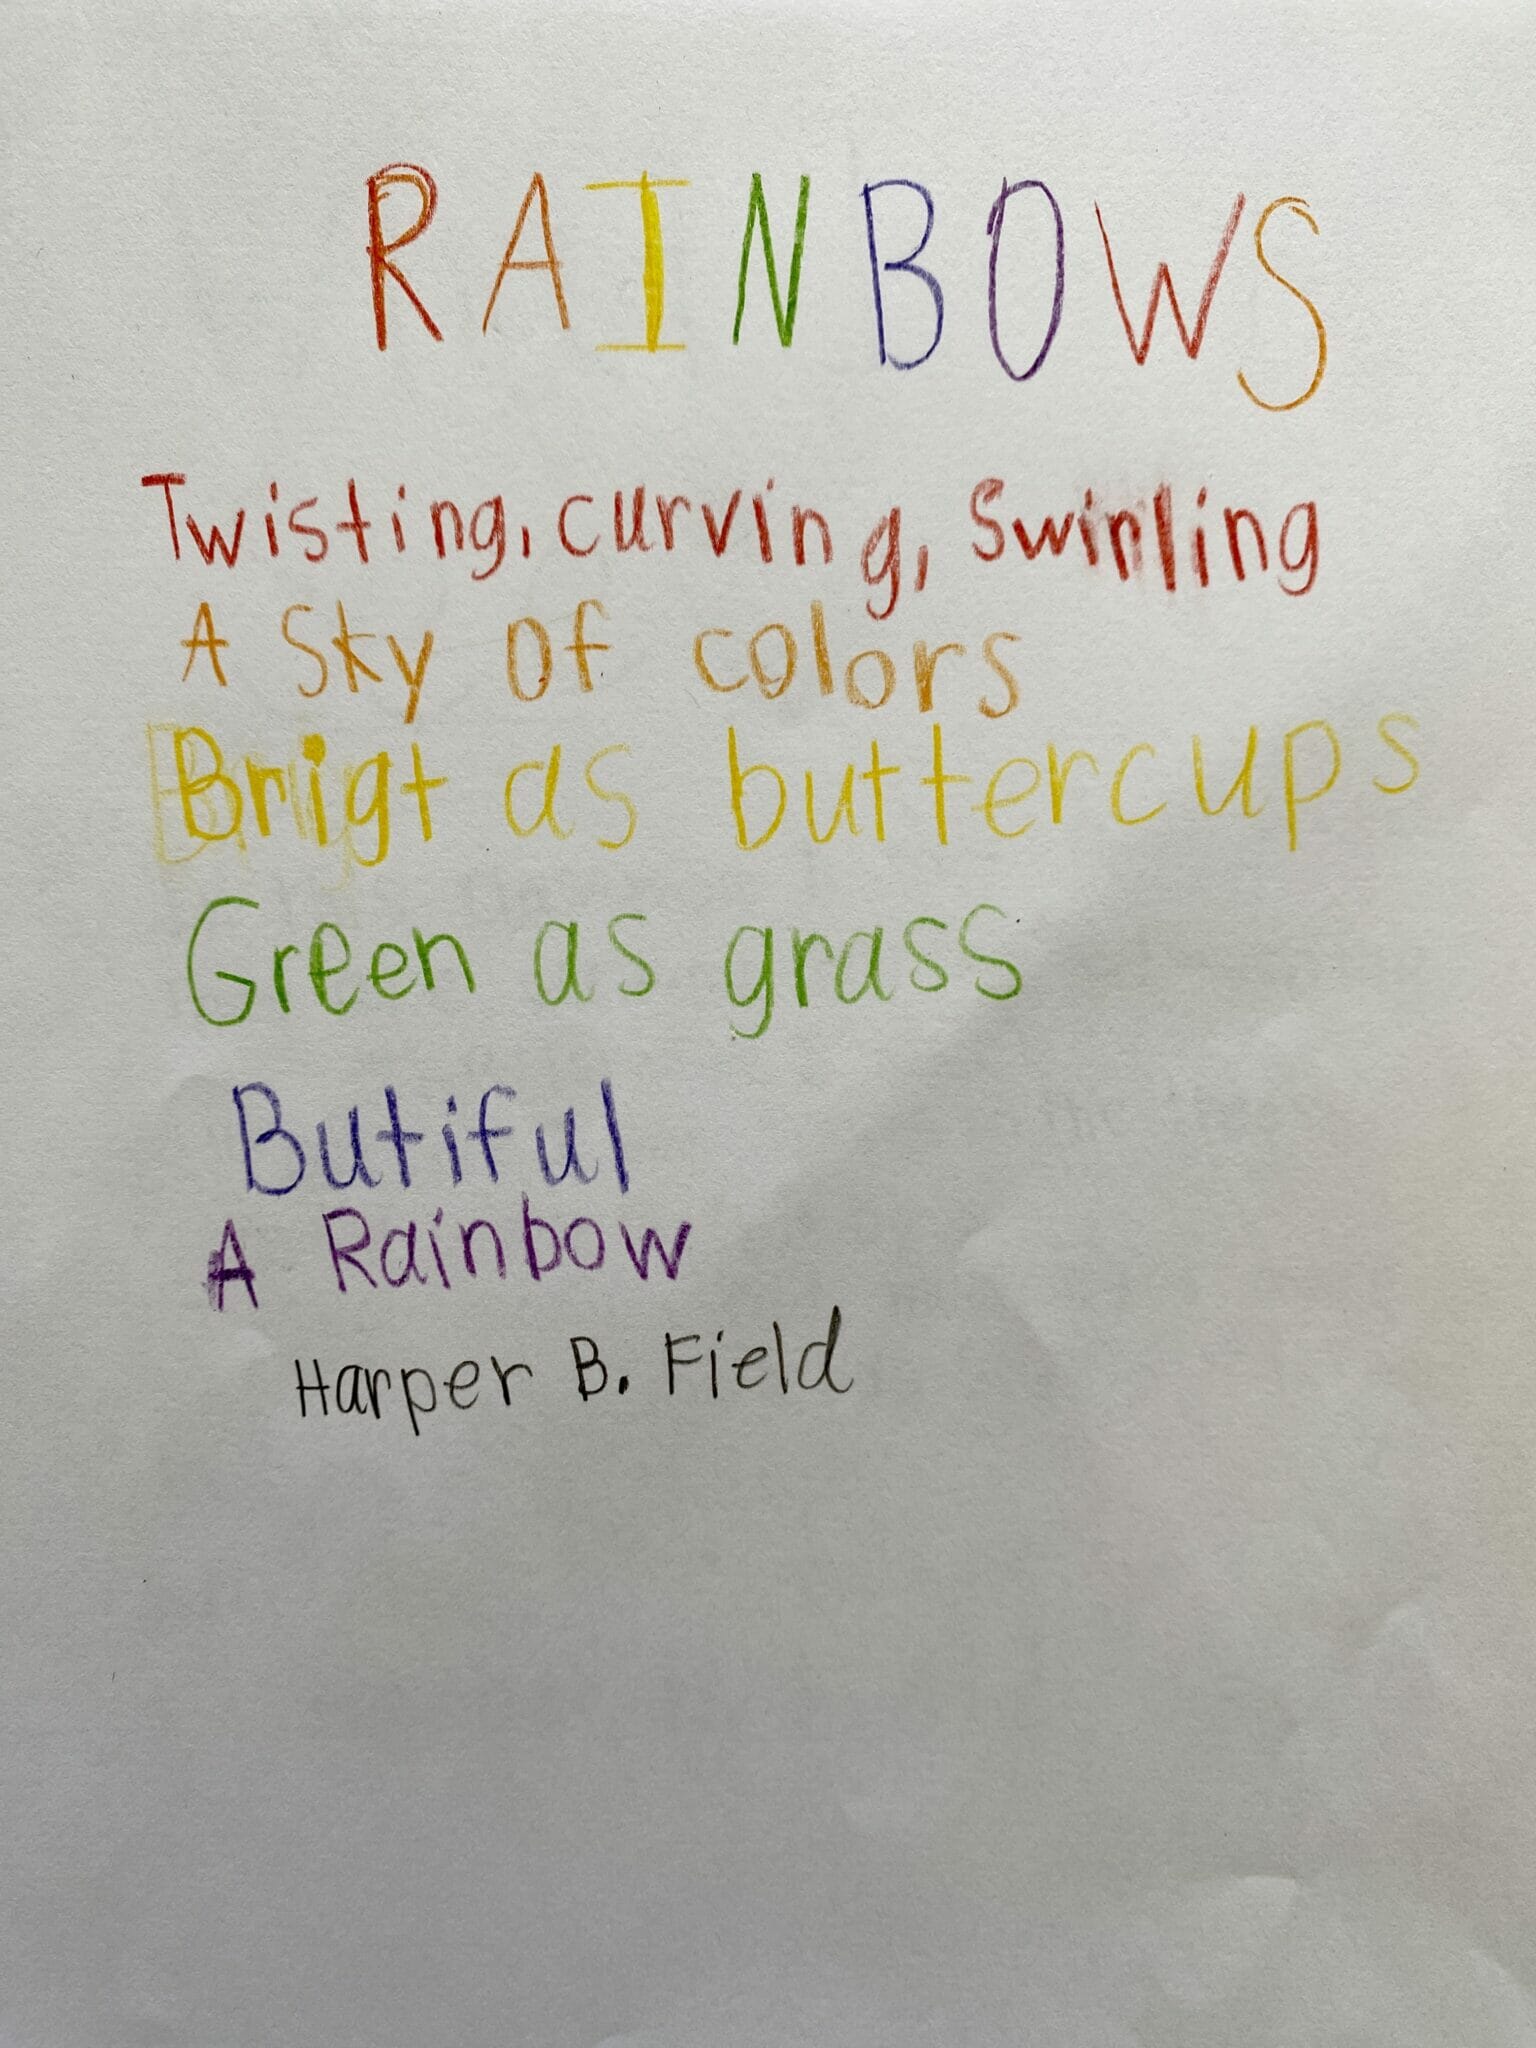 RAINBOWS
Twisting, curving, Swirling
A Sky of colors
Brigt as buttercups
Green as grass
Butiful
A Rainbow
Harper B. Field